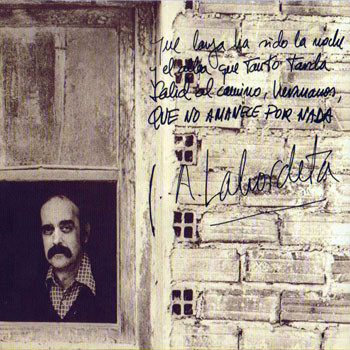 Que larga ha sido la noche
y el alba que tanto tarda
Salid al camino, hermanos,
QUE NO AMANECE POR NADA
J. A. Labordeta